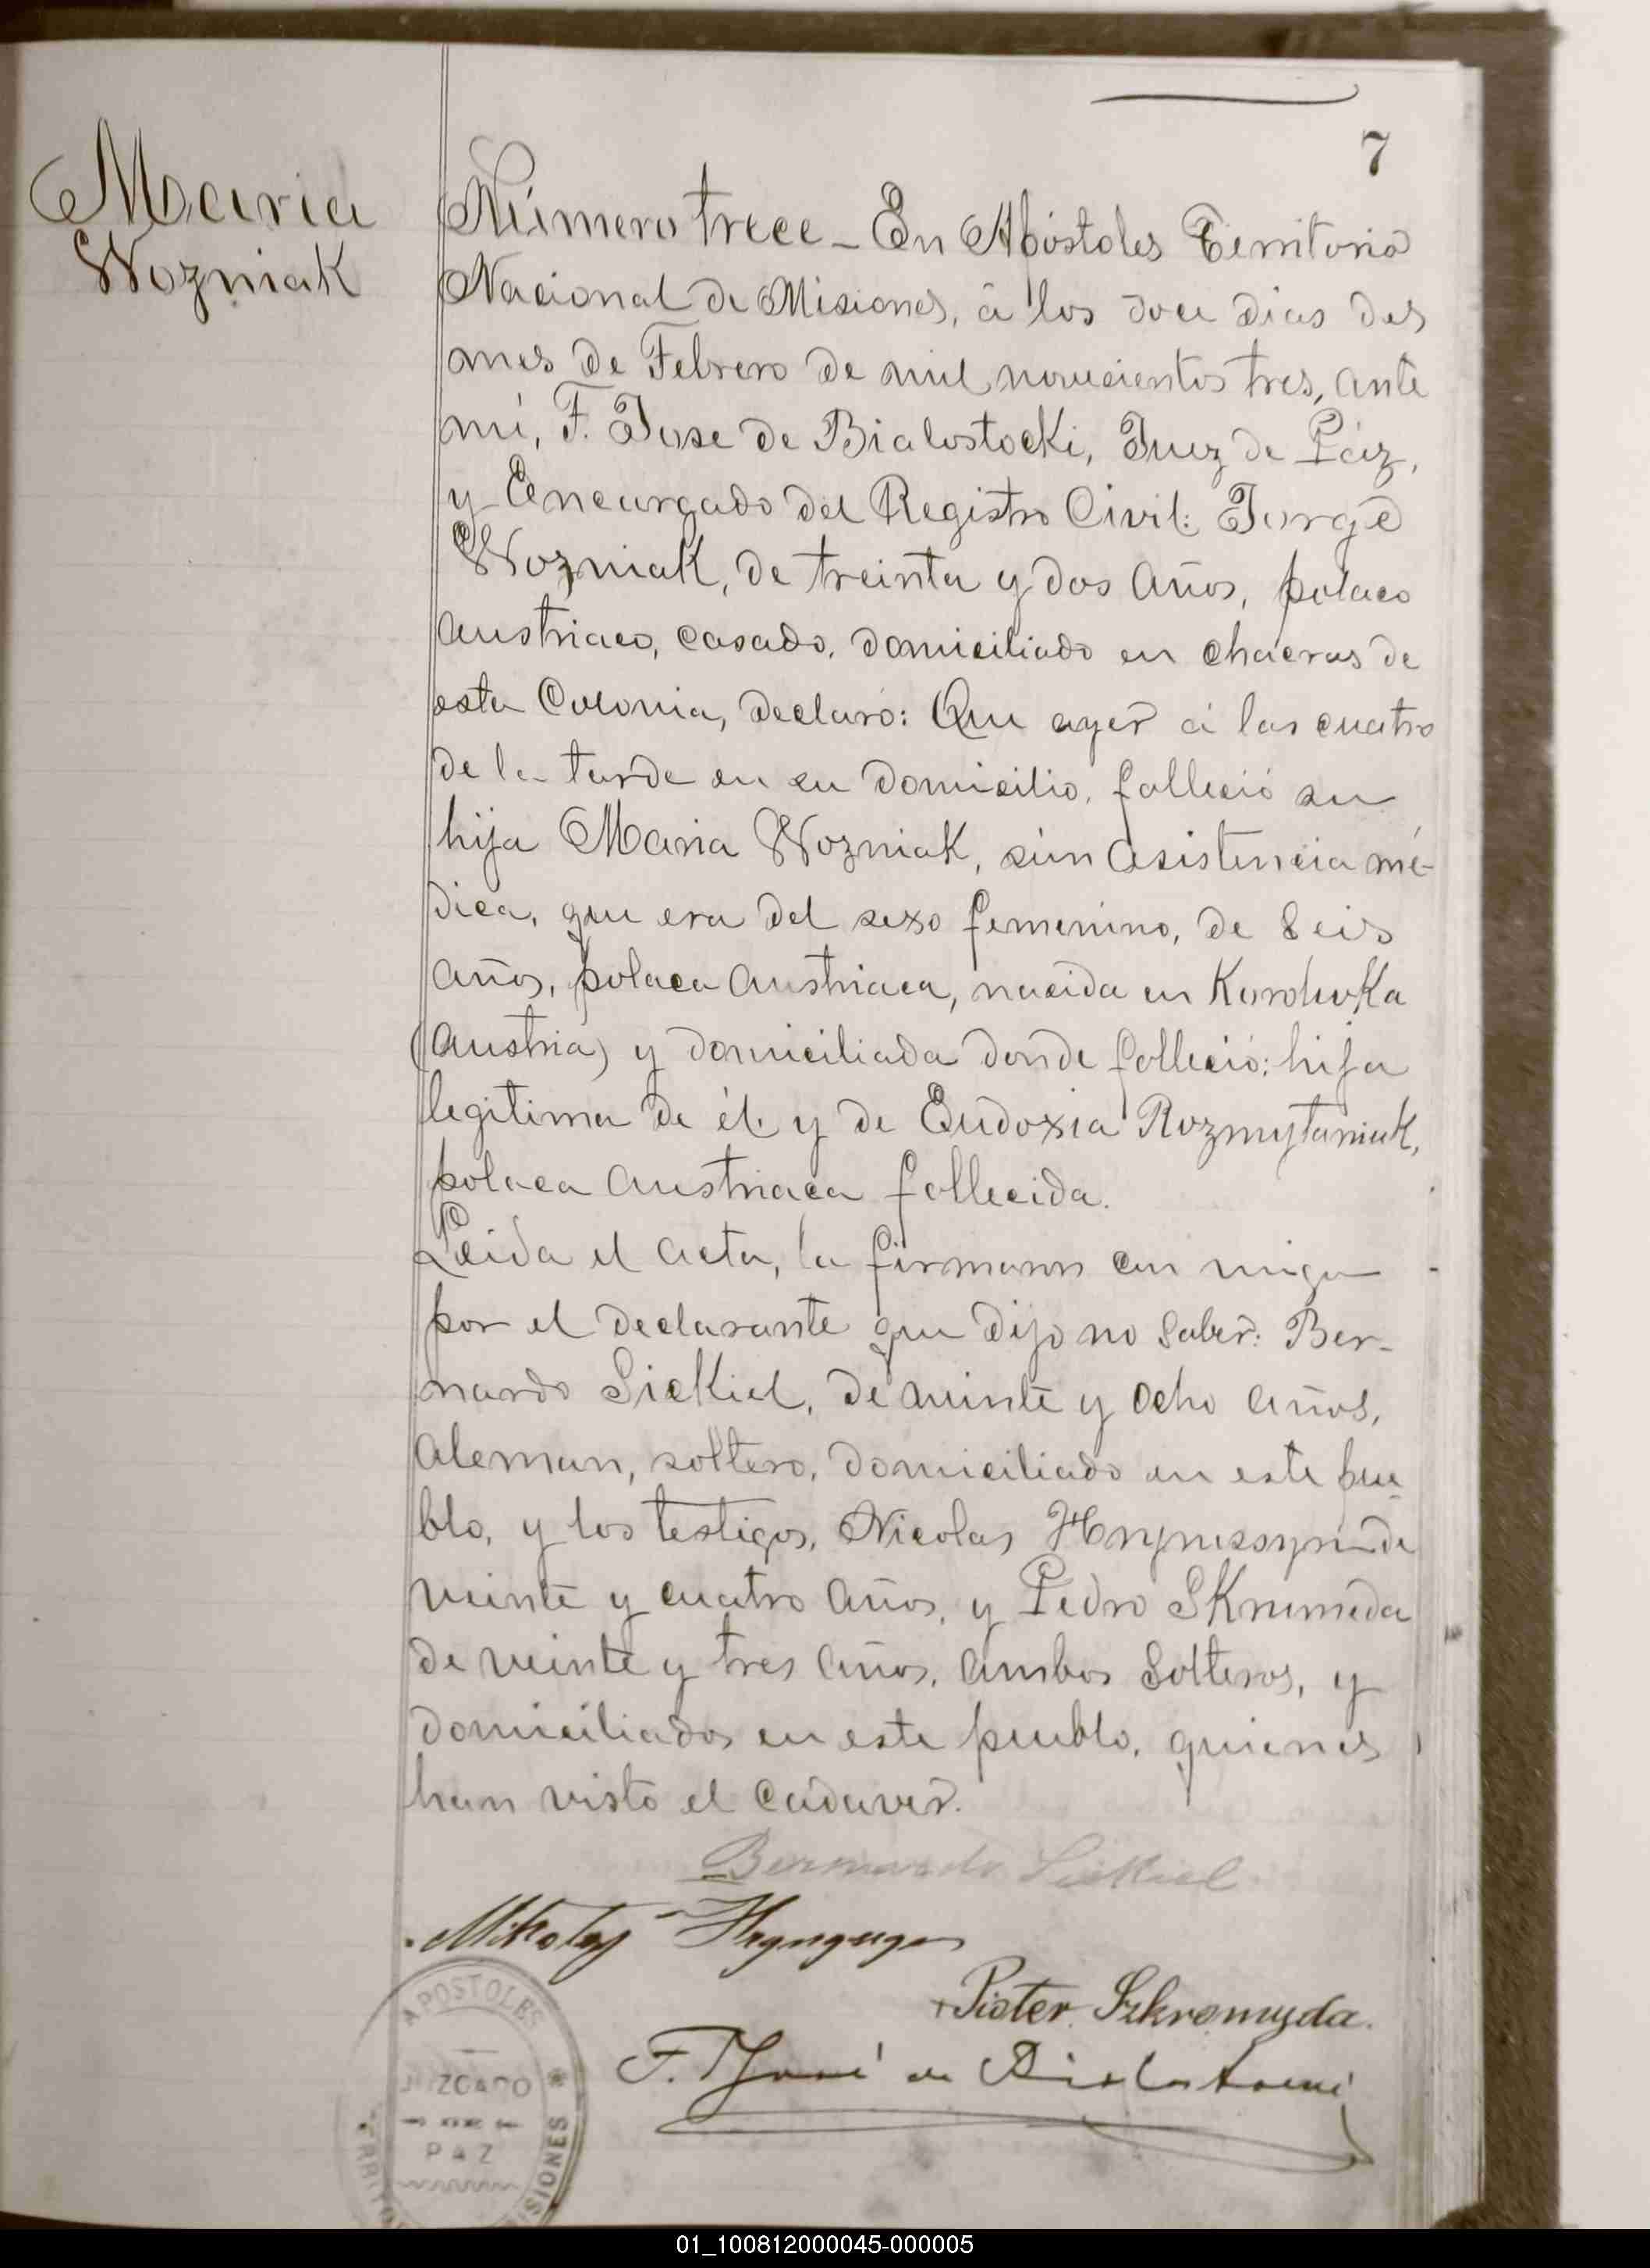 7
Maria
Wozniak
Número trece _ En Apóstoles Territorio
Nacional de Misiones, á los doce dias del
mes de Febrero de mil novecientos tres, ante
mi, F. Jose de Bialostocki, Juez de Páz,
y Encargado del Registro Civil: Jorge
Wozniak, de treinta y dos años, polaco
austriaco, casado, domiciliado en chacras de
esta Colonia, declaró: Que ayer á las cuatro
de la tarde en su domicilio, falleció su
hija Maria Wozniak, sin asistencia mé-
dica, que era del sexo femenino, de seis
años, polaca austriaca, nacida en Korduvka
(Austria) y domiciliada donde falleció; hija
legitima de él y de Eudoxia Rozmytaniuk,
polaca austriaca fallecida.
Leida el acta, la firmaron con migo
por el declarante que dijo no saber: Ber-
nardo Siekiel, de veinte y ocho años,
aleman, soltero, domiciliado en este pue
blo, y los testigos, Nicolas de
veinte y cuatro años, y Pedro Skrumeda
de veinte y tres años, ambos solteros, y
domiciliados en este pueblo, quienes
han visto el cadaver.
Bernardo Siekiel
Mikołaj
Pioter Szkromyda.
F. José de Bialostocki
APOSTOLES
JUZGADO
DE
PAZ
MISIONES
01_100812000045-000005